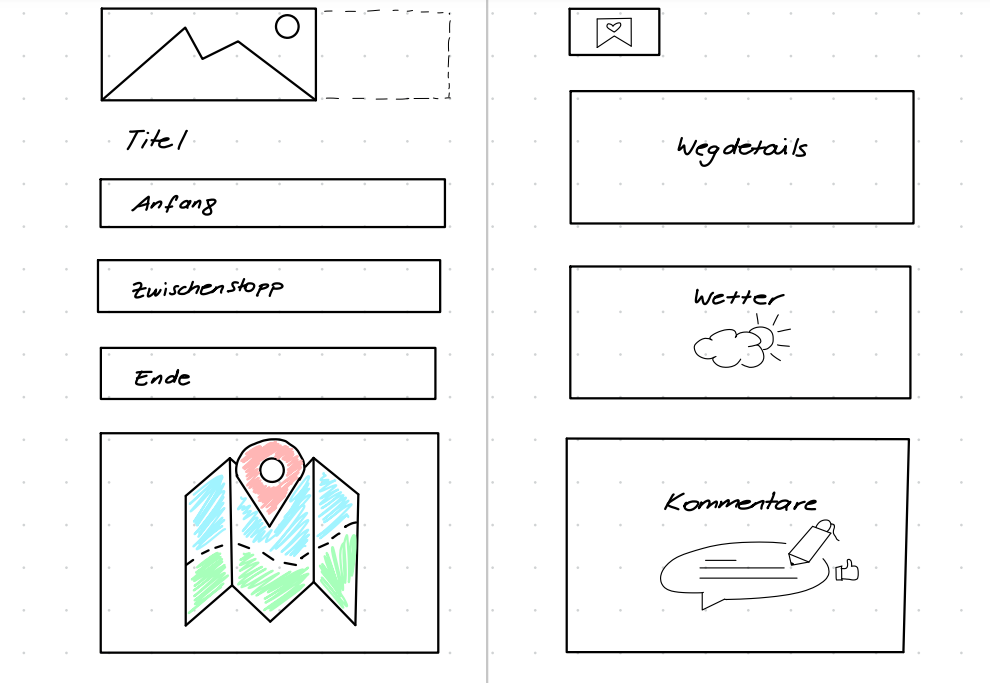 Titel
Anfang
Zwischenstopp
Ende
Wegdetails
Wetter
Kommentare